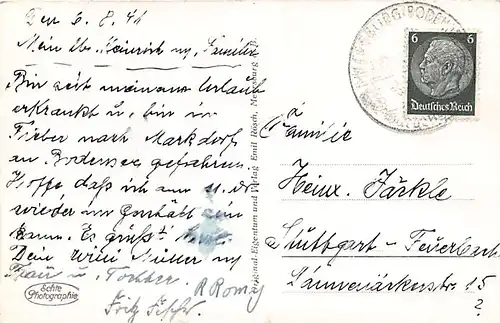 Den 6.8.41
Mein lbr. Heinrich u. Familie
Bin seit meinem Urlaub
erkrankt u. bin im
Fieber nach Markdorf
an Bodensee gefahren.
Hoffe daß ich am 11. ds
wieder im Geschäft sein
kann. Es grüßt
Dein
Frau u. Tochter
Echte
Photographie
Original-Eigentum und Verlag Emil Rösch, Meersburg
MEERSBURG (BODENSEE)
6
Deutsches Reich
Familie
Heinr. Järkle
Stuttgart - Feuerbach
15